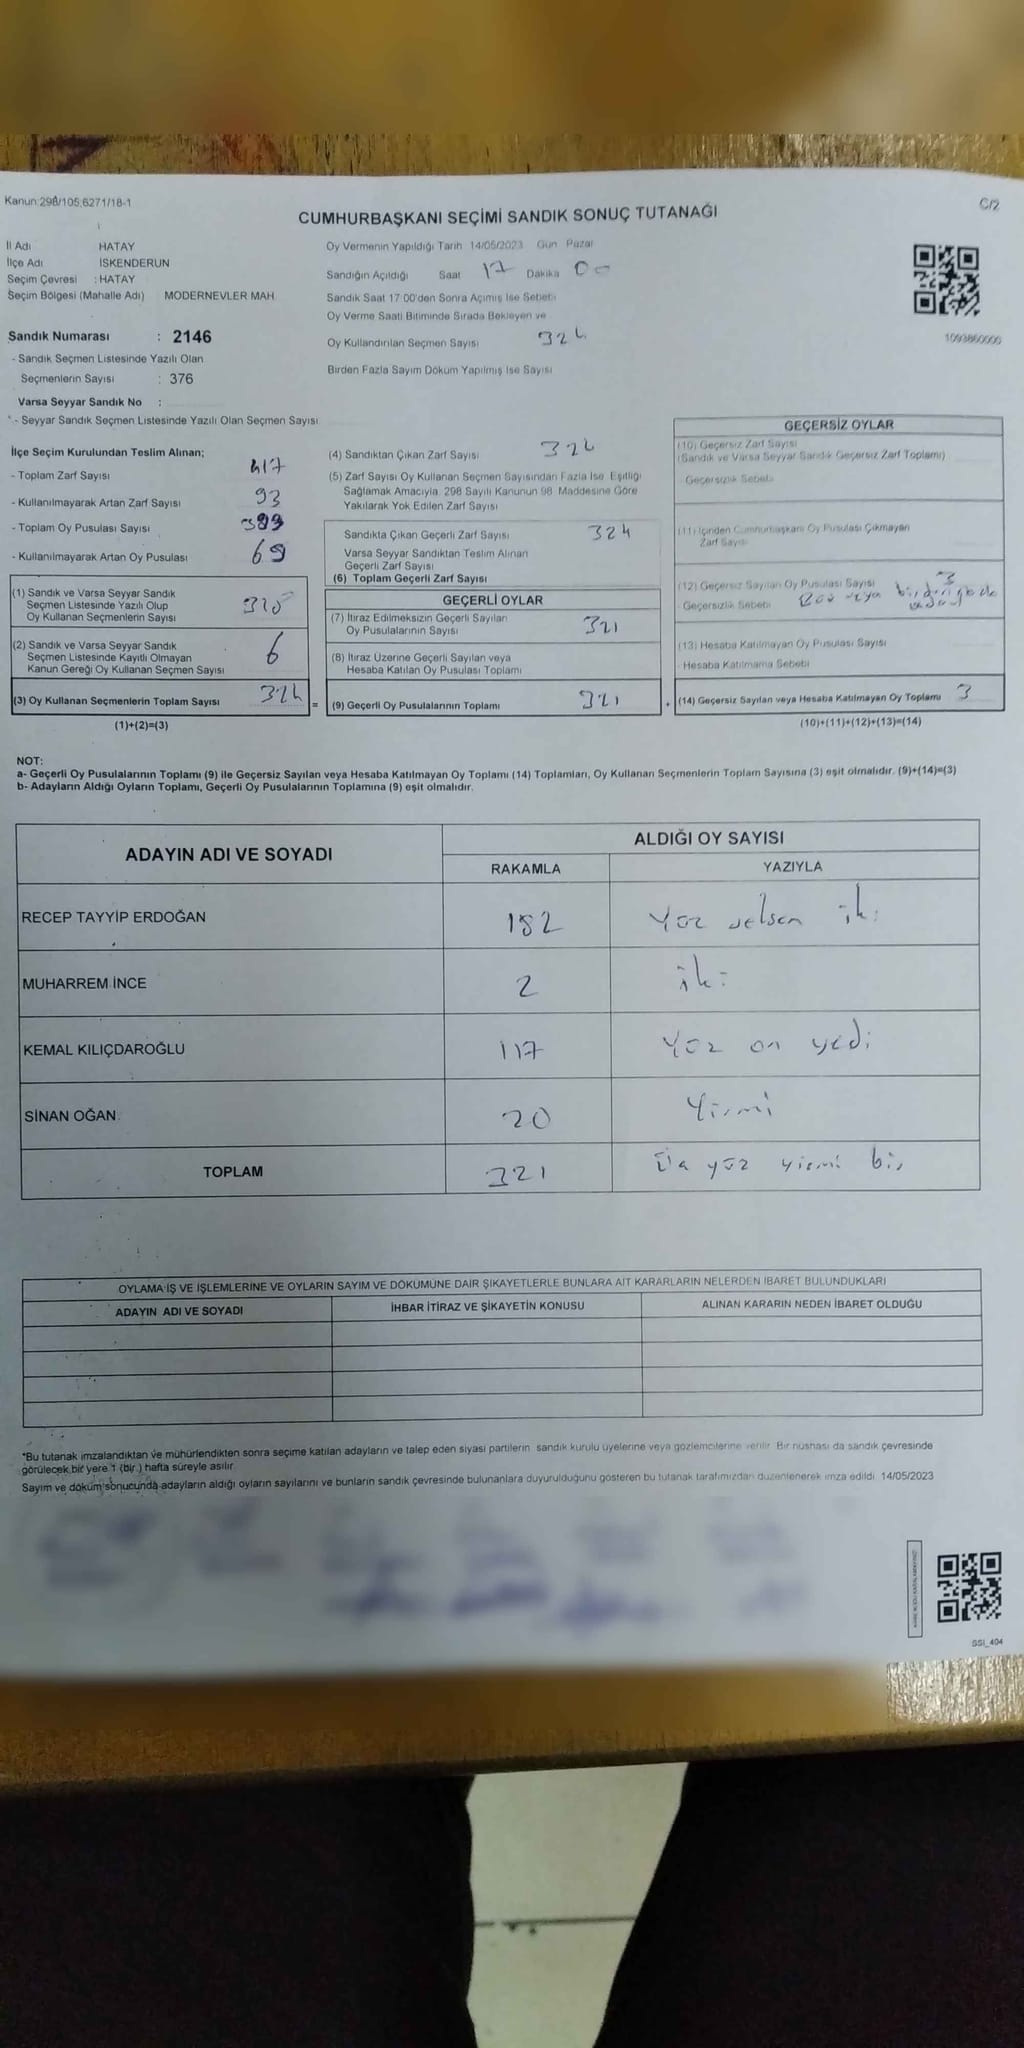 Kanun:298/105;6271/18-1
C/2
CUMHURBAŞKANI SEÇİMİ SANDIK SONUÇ TUTANAĞI
İl Adı HATAY
İlçe Adı İSKENDERUN
Seçim Çevresi : HATAY
Seçim Bölgesi (Mahalle Adı) MODERNEVLER MAH.
Sandık Numarası : 2146
- Sandık Seçmen Listesinde Yazılı Olan
Seçmenlerin Sayısı : 376
Varsa Seyyar Sandık No :
- Seyyar Sandık Seçmen Listesinde Yazılı Olan Seçmen Sayısı
Oy Vermenin Yapıldığı Tarih 14/05/2023 Gün Pazar
Sandığın Açıldığı Saat 17 Dakika 00
Sandık Saat 17:00'den Sonra Açımış İse Sebebi
Oy Verme Saati Bitiminde Sırada Bekleyen ve
Oy Kullandırılan Seçmen Sayısı 324
Birden Fazla Sayım Döküm Yapılmış İse Sayısı
1093860000
İlçe Seçim Kurulundan Teslim Alınan;
- Toplam Zarf Sayısı 417
- Kullanılmayarak Artan Zarf Sayısı 93
- Toplam Oy Pusulası Sayısı 393
- Kullanılmayarak Artan Oy Pusulası 69
(1) Sandık ve Varsa Seyyar Sandık
Seçmen Listesinde Yazılı Olup
Oy Kullanan Seçmenlerin Sayısı
(2) Sandık ve Varsa Seyyar Sandık
Seçmen Listesinde Kayıtlı Olmayan
Kanun Gereği Oy Kullanan Seçmen Sayısı 6
(3) Oy Kullanan Seçmenlerin Toplam Sayısı 324
(1)+(2)=(3)
(4) Sandıktan Çıkan Zarf Sayısı 324
(5) Zarf Sayısı Oy Kullanan Seçmen Sayısından Fazla İse Eşitliği
Sağlamak Amacıyla 298 Sayılı Kanunun 98. Maddesine Göre
Yakılarak Yok Edilen Zarf Sayısı
Sandıkta Çıkan Geçerli Zarf Sayısı 324
Varsa Seyyar Sandıktan Teslim Alınan
Geçerli Zarf Sayısı
(6) Toplam Geçerli Zarf Sayısı
GEÇERLİ OYLAR
(7) İtiraz Edilmeksizin Geçerli Sayılan
Oy Pusulalarının Sayısı 321
(8) İtiraz Üzerine Geçerli Sayılan veya
Hesaba Katılan Oy Pusulası Toplamı
= (9) Geçerli Oy Pusulalarının Toplamı 321
GEÇERSİZ OYLAR
(10) Geçersiz Zarf Sayısı
(Sandık ve Varsa Seyyar Sandık Geçersiz Zarf Toplamı)
- Geçersizlik Sebebi
(11) İçinden Cumhurbaşkanı Oy Pusulası Çıkmayan
Zarf Sayısı
(12) Geçersiz Sayılan Oy Pusulası Sayısı 3
- Geçersizlik Sebebi veya
(13) Hesaba Katılmayan Oy Pusulası Sayısı
- Hesaba Katılmama Sebebi
+ (14) Geçersiz Sayılan veya Hesaba Katılmayan Oy Toplamı 3
(10)+(11)+(12)+(13)=(14)
NOT:
a- Geçerli Oy Pusulalarının Toplamı (9) ile Geçersiz Sayılan veya Hesaba Katılmayan Oy Toplamı (14) Toplamları, Oy Kullanan Seçmenlerin Toplam Sayısına (3) eşit olmalıdır. (9)+(14)=(3)
b- Adayların Aldığı Oyların Toplamı, Geçerli Oy Pusulalarının Toplamına (9) eşit olmalıdır.
ADAYIN ADI VE SOYADI ALDIĞI OY SAYISI
RAKAMLA YAZIYLA
RECEP TAYYİP ERDOĞAN 182 Yüz seksen iki
MUHARREM İNCE 2 iki
KEMAL KILIÇDAROĞLU 117 Yüz on yedi
SİNAN OĞAN 20 Yirmi
TOPLAM 321 Üç yüz yirmi bir
OYLAMA İŞ VE İŞLEMLERİNE VE OYLARIN SAYIM VE DÖKÜMÜNE DAİR ŞİKAYETLERLE BUNLARA AİT KARARLARIN NELERDEN İBARET BULUNDUKLARI
ADAYIN ADI VE SOYADI İHBAR İTİRAZ VE ŞİKAYETİN KONUSU ALINAN KARARIN NEDEN İBARET OLDUĞU
*Bu tutanak imzalandıktan ve mühürlendikten sonra seçime katılan adayların ve talep eden siyasi partilerin sandık kurulu üyelerine veya gözlemcilerine verilir. Bir nüshası da sandık çevresinde
görülecek bir yere 1 (bir) hafta süreyle asılır.
Sayım ve döküm sonucunda adayların aldığı oyların sayılarını ve bunların sandık çevresinde bulunanlara duyurulduğunu gösteren bu tutanak tarafımızdan düzenlenerek imza edildi. 14/05/2023
SSI_404